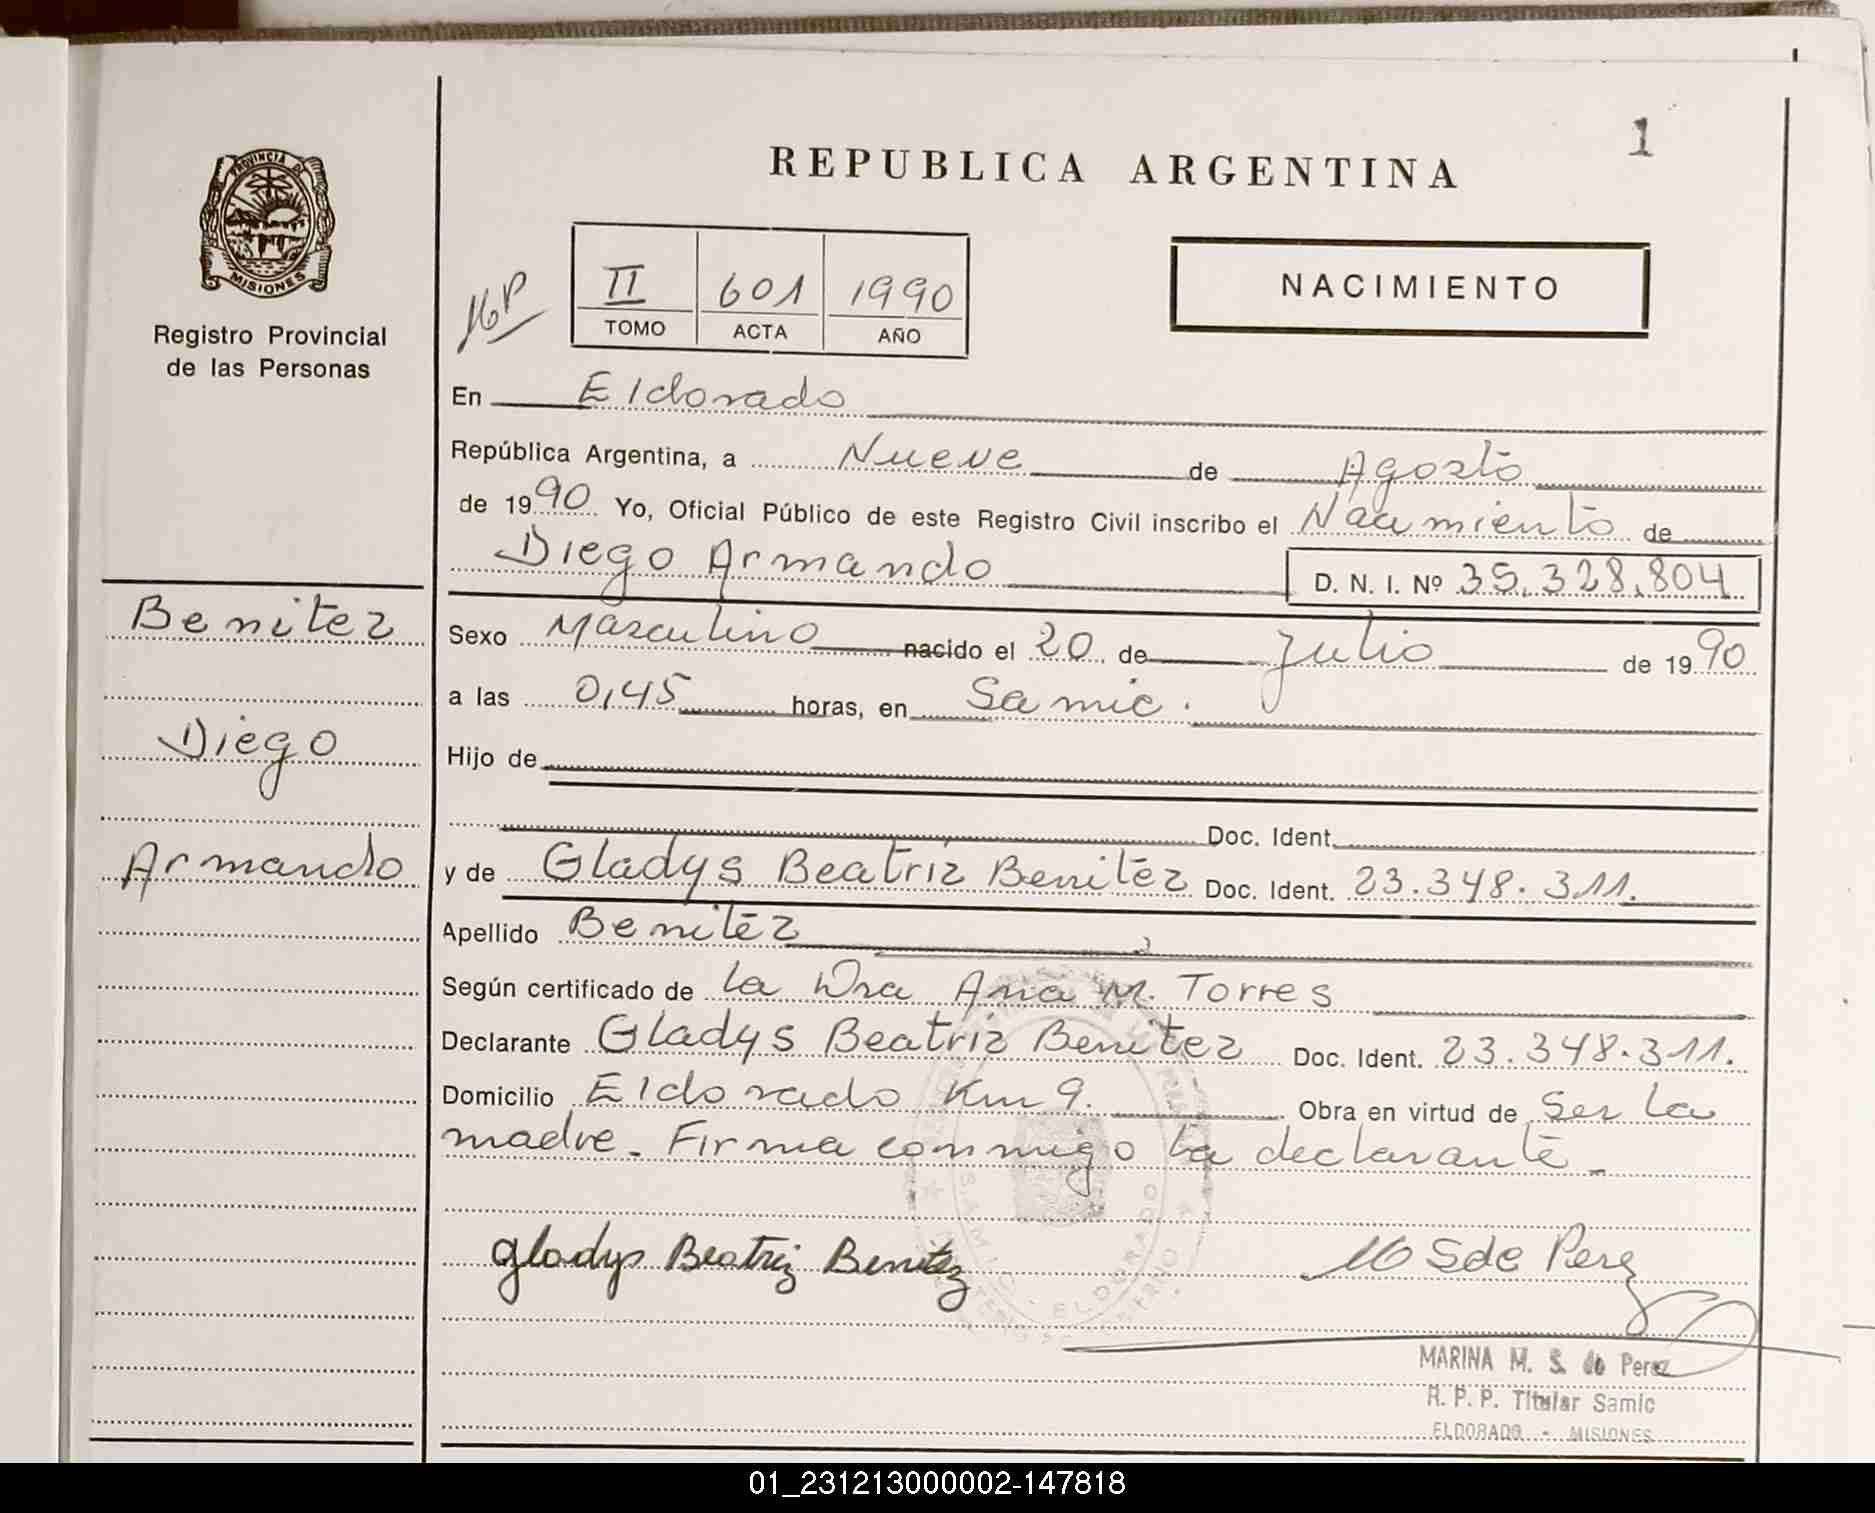 1
REPUBLICA ARGENTINA
PROVINCIA DE
MISIONES
Registro Provincial
de las Personas
II 601 1990
TOMO ACTA AÑO
NACIMIENTO
En Eldorado
República Argentina, a Nueve de Agosto
de 1990 Yo, Oficial Público de este Registro Civil inscribo el Nacimiento de
Diego Armando D. N. I. Nº 35.328.804
Benitez
Diego
Armando
Sexo Masculino nacido el 20 de Julio de 1990
a las 0,45 horas, en Samic.
Hijo de
Doc. Ident.
y de Gladys Beatriz Benitez Doc. Ident. 23.348.311.
Apellido Benitez
Según certificado de la Dra Ana M. Torres
Declarante Gladys Beatriz Benitez Doc. Ident. 23.348.311.
Domicilio Eldorado Km 9. Obra en virtud de Ser la
madre. Firma conmigo la declarante.
Gladys Beatriz Benitez
M S de Perez
SAMIC - ELDORADO
MARINA M. S. de Perez
R. P. P. Titular Samic
ELDORADO - MISIONES
01_231213000002-147818